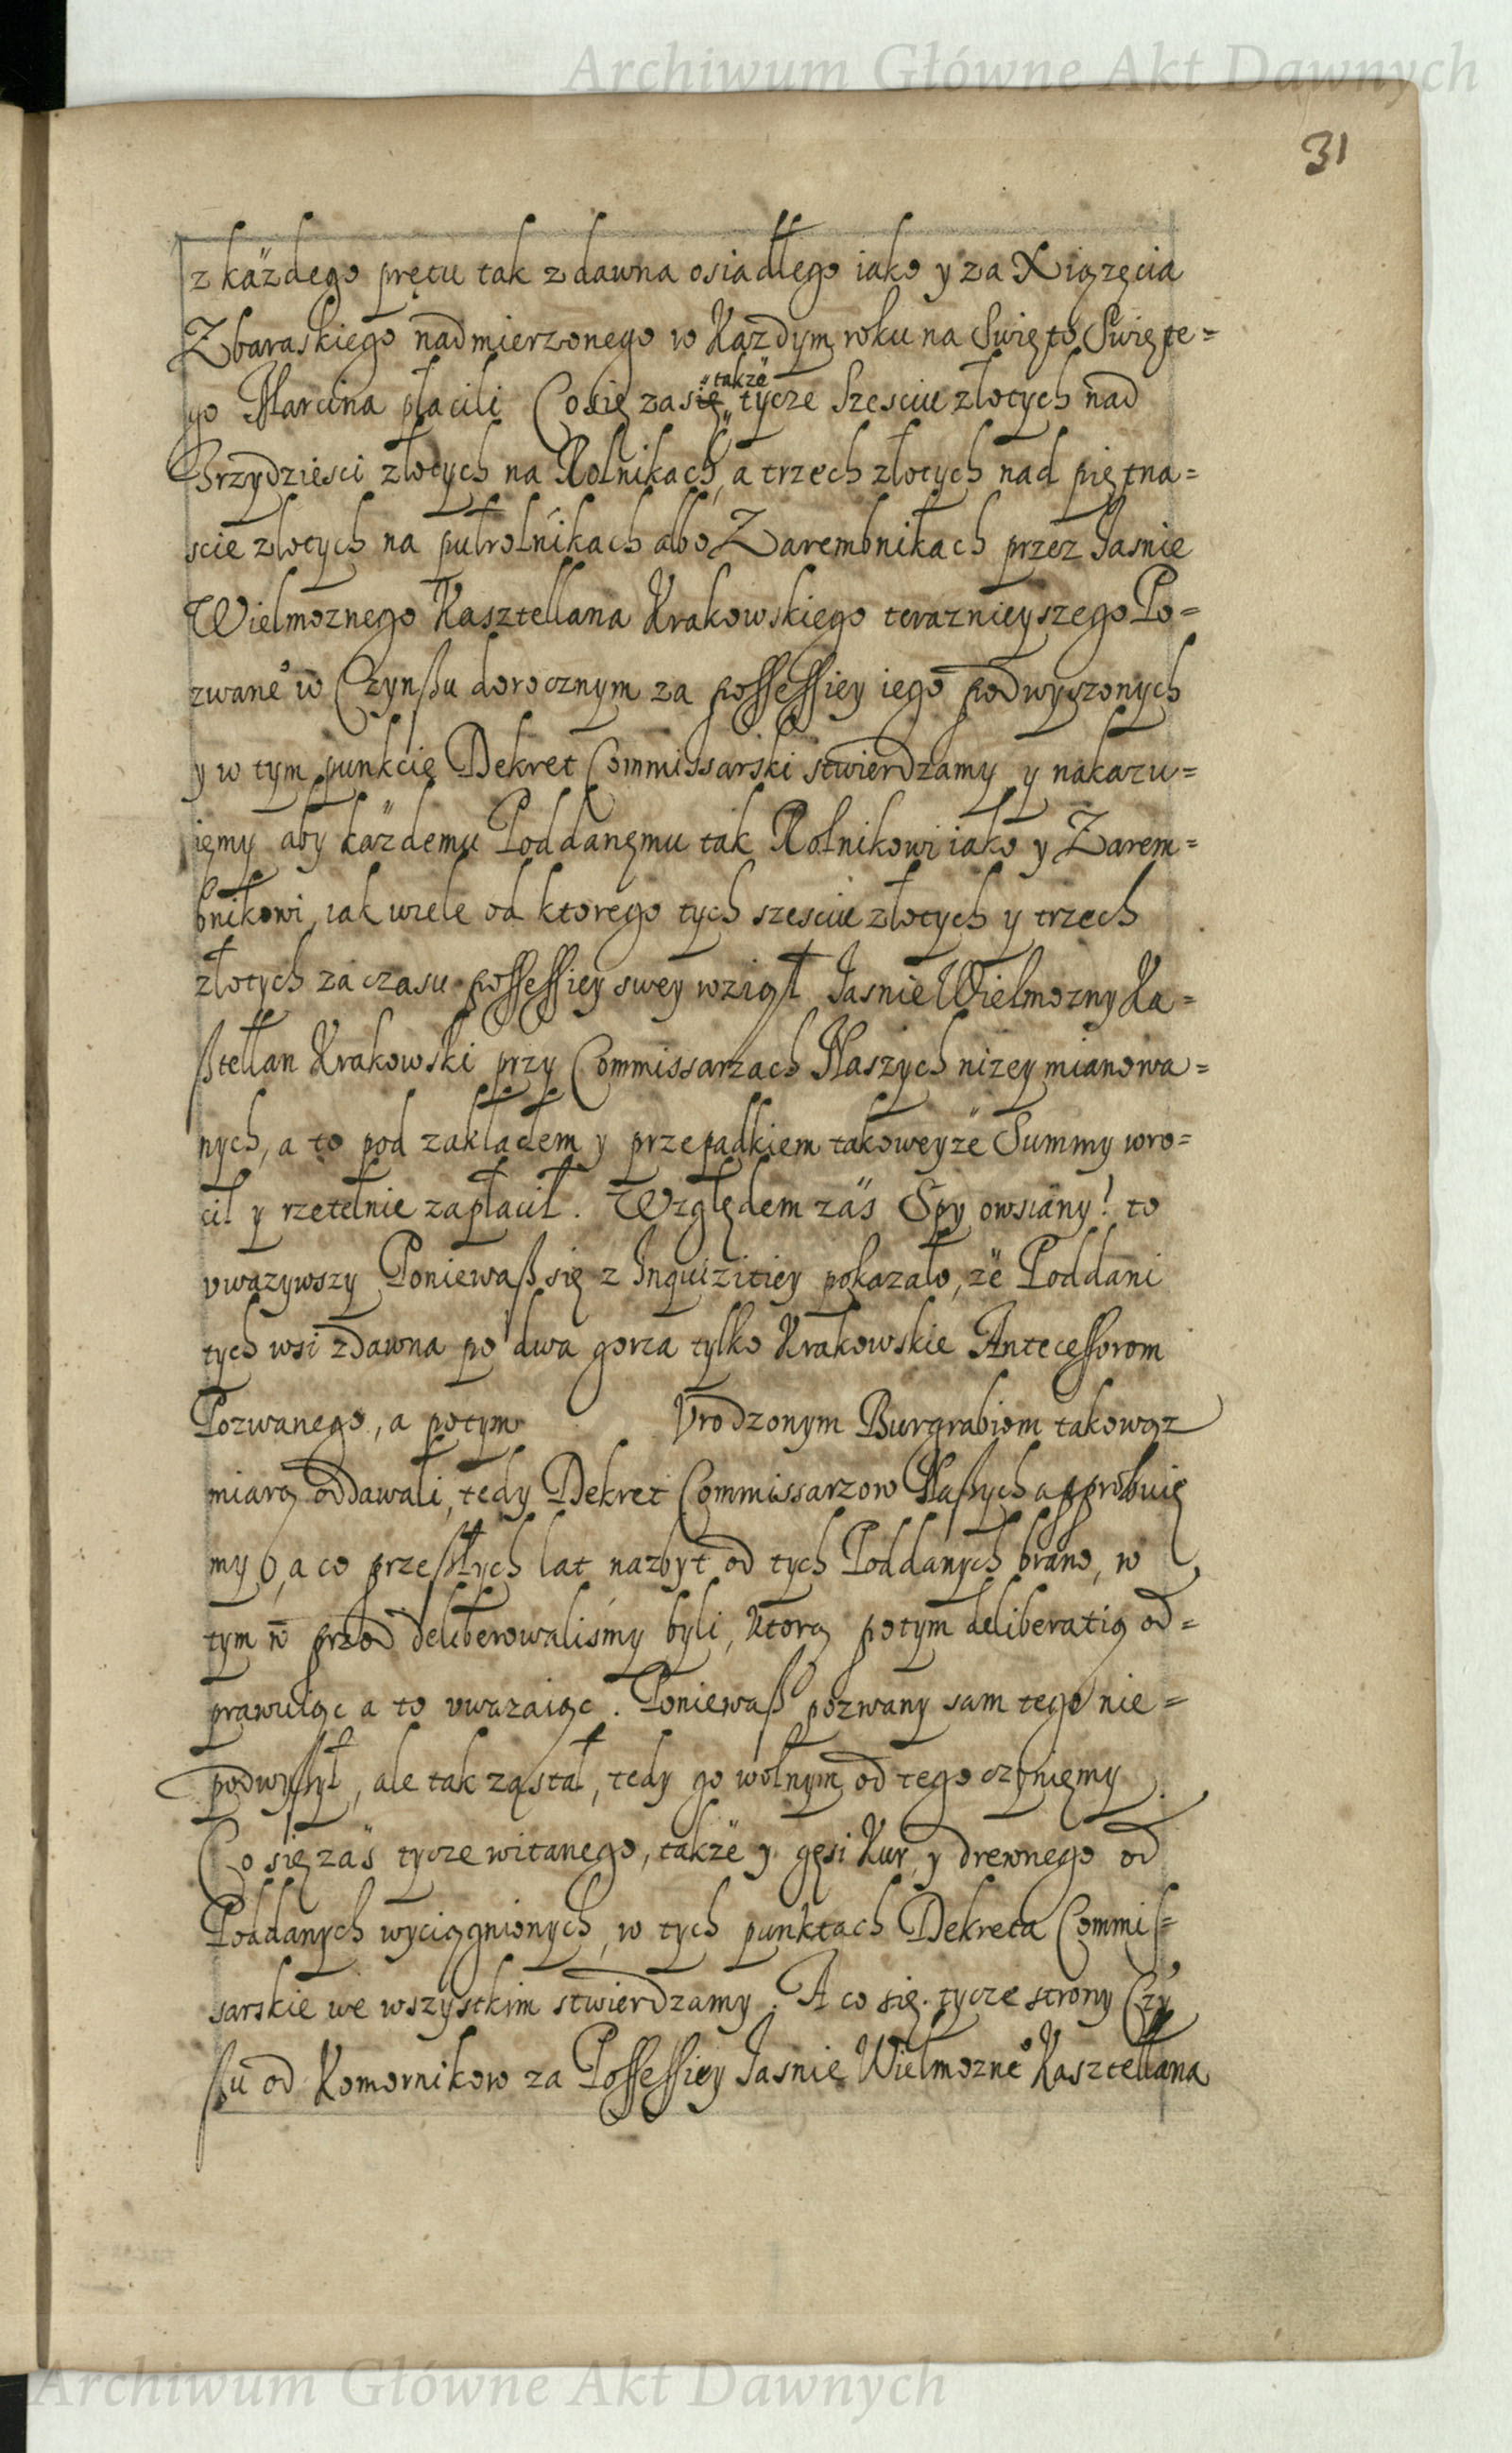 Archiwum Główne Akt Dawnych
31
z każdego prętu tak zdawna osiadłego iako y za Xiązęcia
Zbaraskiego nadmierzonego w Każdym roku na Swięto Swięte=
go Marcina płacili Co się zasię także tycze szesciu złotych nad
Trzydziesci złotych na Rolnikach, a trzech złotych nad piętna=
scie złotych na pułrolnikach abo Zarembnikach przez Jasnie
Wielmoznego Kasztellana Krakowskiego teraznieyszego Po=
zwane° w Czynßu dorocznym za possessiey iego podwyszonych
y w tym punkcie Dekret Commissarski stwierdzamy y nakazu=
iemy aby każdemu Poddanemu tak Rolnikowi iako y Zarem=
bnikowi, iak wiele od ktorego tych szesciu złotych y trzech
złotych za czasu possessiey swey wziął Jasnie Wielmozny Ka=
ßtellan Krakowski przy Commissarzach Naszych nizey mianowa=
nych, a to pod zakładem y przepadkiem takoweyże Summy wro=
cił y rzetelnie zapłacił. Względem zaś Spy owsiany! to
vwazywszy Poniewaß się z Inquizitiey pokazało, że Poddani
tych wsi zdawna po dwa gorca tylko Krakowskie Antecessorom
Pozwanego, a potym Vrodzonym Burgrabiom takowąz
miarą oddawali, tedy Dekret Commissarzow Naßych approbuię
my, a co przeßłych lat nazbyt od tych Poddanych brano, w
tym w przod deliberowalismy byli, ktorą potym deliberatią od=
prawuiąc a to vwazaiąc. Poniewaß pozwany sam tego nie=
podwyßył, ale tak ząstał, tedy go wolnym od tego czyniemy.
Co się zaś tycze witanego, także y gęsi Kur, y drewnego od
Poddanych wyciągnionych, w tych punktach Dekreta Commis=
sarskie we wszystkim stwierdzamy. A co się tycze strony Czy
ßu od Komornikow za Possessiey Jasnie Wielmozne° Kasztellana
Archiwum Główne Akt Dawnych